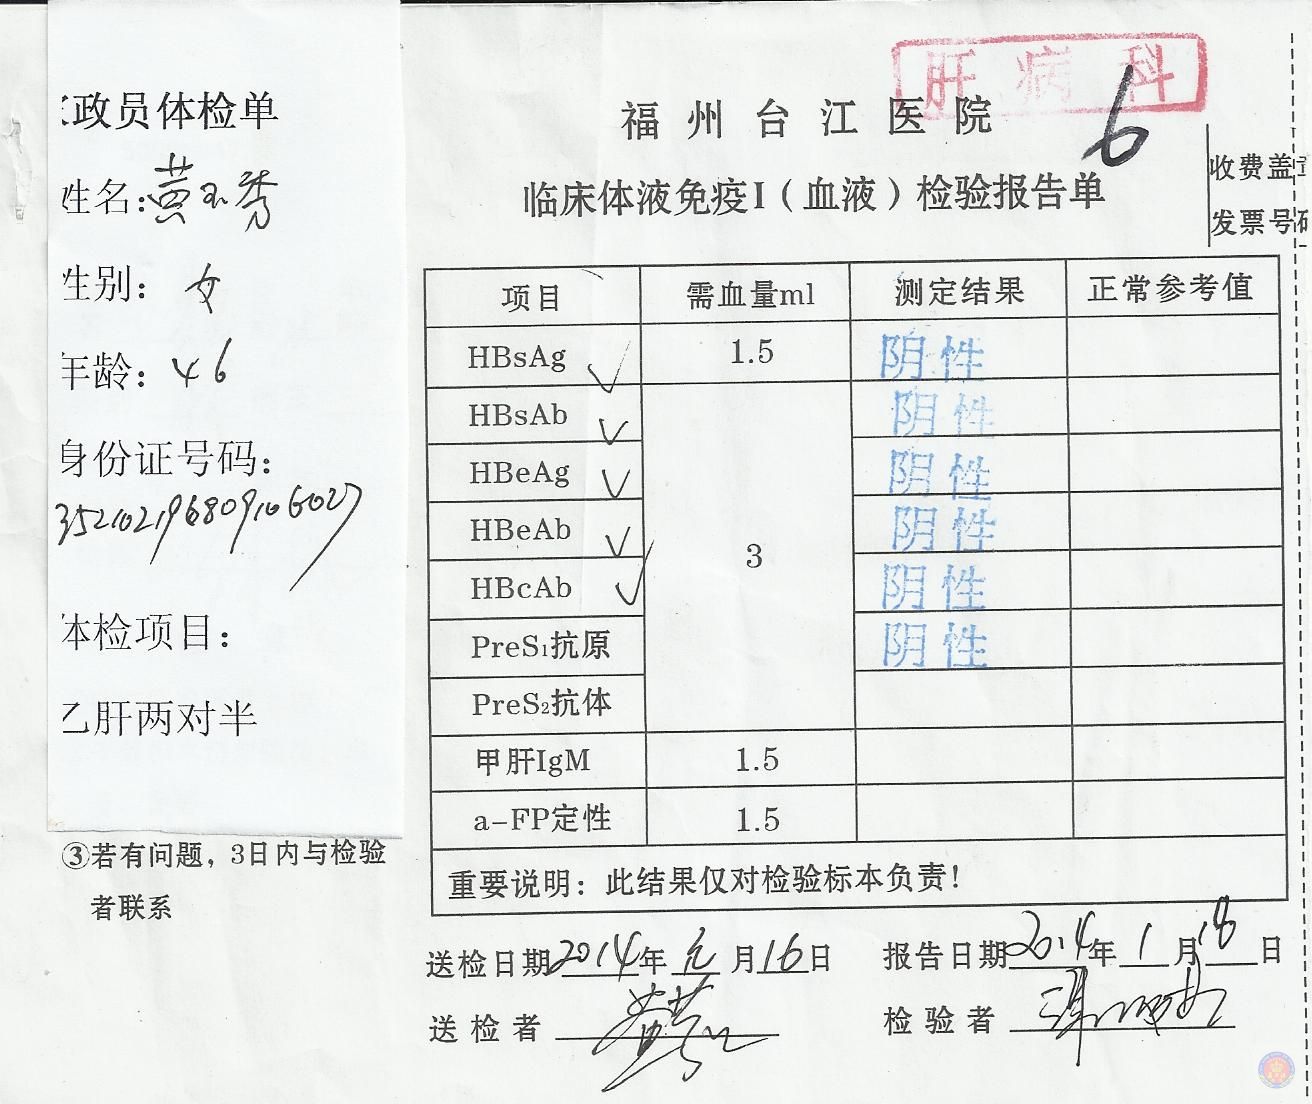 政员体检单
姓名:黄玉秀
性别: 女
年龄: 46
身份证号码:
352102196809106027
体检项目:
乙肝两对半
③若有问题, 3日内与检验
者联系
肝病科
6
福州台江医院
临床体液免疫I(血液)检验报告单
收费盖
发票号码
项目 需血量ml 测定结果 正常参考值
HBsAg ✓ 1.5 阴性
HBsAb ✓ 阴性
HBeAg ✓ 阴性
HBeAb ✓ 3 阴性
HBcAb ✓ 阴性
PreS₁抗原 阴性
PreS₂抗体
甲肝IgM 1.5
a-FP定性 1.5
重要说明: 此结果仅对检验标本负责!
送检日期2014年元月16日 报告日期2014年1月18日
送检者 检验者